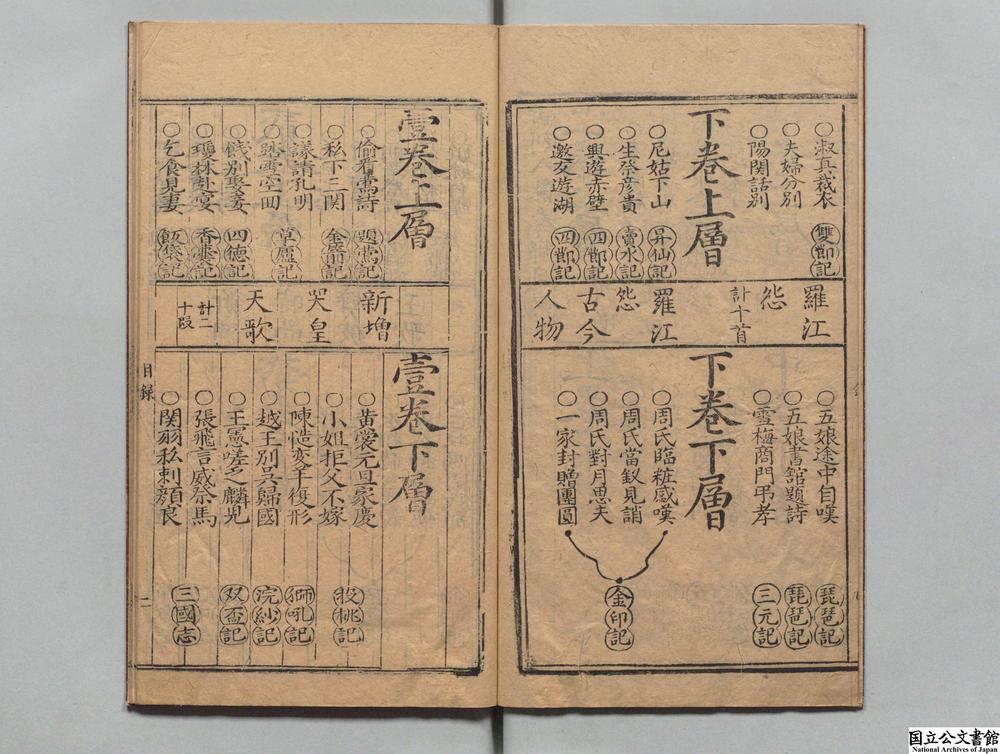 ○淑真裁衣 雙節記
○夫婦分別
○陽関話別
下卷上層
○尼姑下山 昇仙記
○生祭彦貴 賣水記
○興遊赤壁 四節記
○邀友遊湖 四節記
羅江
怨
計十首
羅江
怨
古今
人物
○五娘途中自嘆 琵琶記
○五娘書舘題詩 琵琶記
○雪梅商門弔孝 三元記
下卷下層
○周氏臨粧感嘆
○周氏當釵見誚
○周氏對月思夫
○一家封贈團圓
金印記
壹卷上層
○偷看鶯詩 題鶯記
○私下三関 金箭記
○謀請孔明
○踏雪空回 草廬記
○餞別娶妻 四德記
○瓊林赴宴 香囊記
○乞食見妻
新增
哭皇
天歌
計二
十段
壹卷下層
○黃愛元旦家慶
○小姐拒父不嫁 投桃記
○陳慥变羊復形 獅吼記
○越王別吳歸國 浣紗記
○王憲嗟乏麟兒 双盃記
○張飛言威祭馬
○関羽私刺顏良
三國志
目録
二
国立公文書館
National Archives of Japan